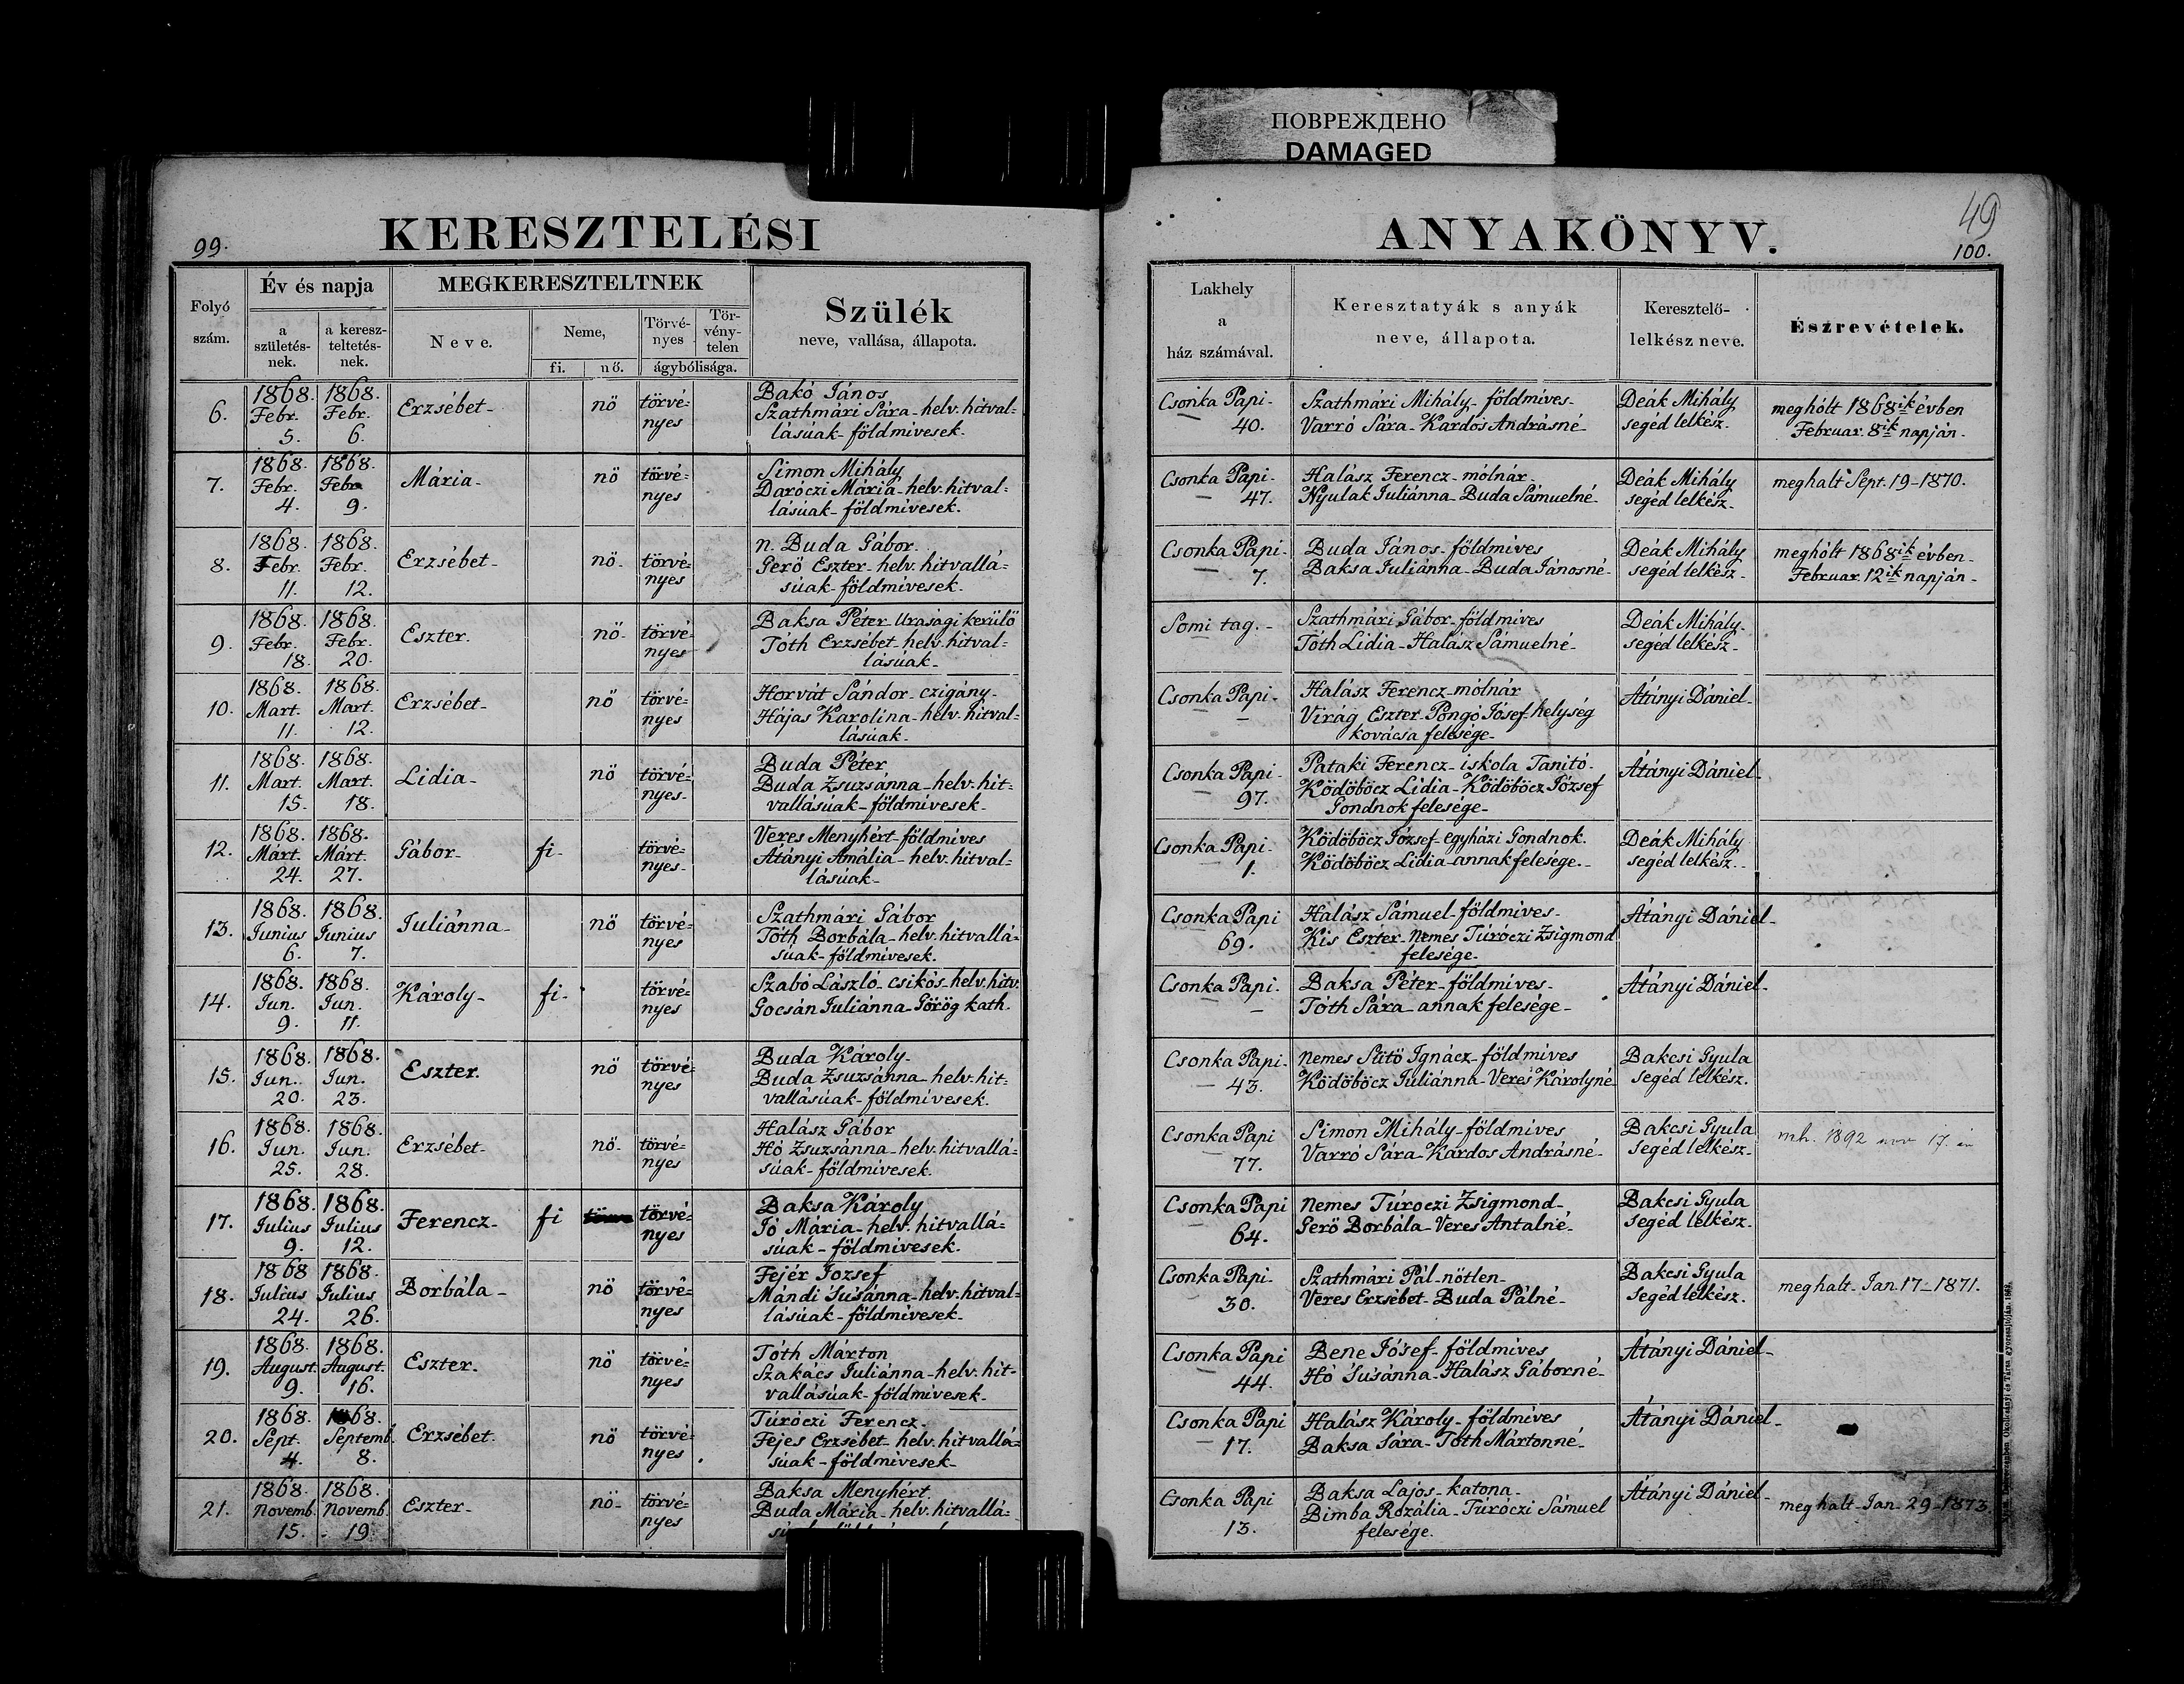 ПОВРЕЖДЕНО
DAMAGED
99.
KERESZTELÉSI
Folyó
szám.
Év és napja
a
születés-
nek.
a keresz-
teltetés-
nek.
MEGKERESZTELTNEK
Neve.
Neme,
fi.
nő.
Törvé-
nyes
Tör-
vény-
telen
ágybólisága.
Szülék
neve, vallása, állapota.
6.
1868.
Febr.
5.
1868.
Febr.
6.
Erzsébet-
nö
törvé-
nyes
Bakó János
Szathmári Sára-helv. hitval-
lásúak-földmivesek.
7.
1868.
Febr.
4.
1868.
Febr
9.
Mária-
nö
törvé-
nyes
Simon Mihály
Daróczi Mária-helv. hitval-
lásúak-földmivesek.
8.
1868.
Febr.
11.
1868.
Febr.
12.
Erzsébet-
nö-
törvé-
nyes
n. Buda Gábor.
Gerö Eszter-helv. hitvallá-
súak-földmivesek.
9.
1868.
Febr.
18.
1868.
Febr.
20.
Eszter.
nö-
törvé-
nyes
Baksa Péter-Urasági kerülö
Tóth Erzsébet-helv. hitval-
lásúak-
10.
1868.
Mart.
11.
1868.
Mart.
12.
Erzsébet-
nö
törvé-
nyes
Horvát Sándor-czigány-
Hájas Karolina-helv. hitval-
lásúak-
11.
1868.
Mart.
15.
1868.
Mart.
18.
Lidia-
nö
törvé-
nyes-
Buda Péter
Buda Zsuzsánna-helv. hit-
vallásúak-földmivesek-
12.
1868.
Márt.
24.
1868.
Márt.
27.
Gábor-
fi-
törvé-
nyes-
Veres Menyhért-földmives
Átányi Amália-helv. hitval-
lásúak-
13.
1868.
Junius
6.
1868.
Junius
7.
Juliánna-
nö
törvé-
nyes
Szathmári Gábor
Tóth Borbála-helv. hitvallá-
súak-földmivesek.
14.
1868.
Jun.
9.
1868.
Jun.
11.
Károly-
fi-
törvé-
nyes
Szabó László-csikós-helv. hitv.
Gocsán Juliánna-Görög kath.
15.
1868.
Jun.
20.
1868.
Jun.
23.
Eszter.
nö
törvé-
nyes
Buda Károly-
Buda Zsuzsánna-helv. hit-
vallásúak-földmivesek.
16.
1868.
Jun.
25.
1868.
Jun.
28.
Erzsébet-
nö-
törvé-
nyes
Halász Gábor
Hó Zsuzsánna-helv. hitvallá-
súak-földmivesek.
17.
1868.
Julius
9.
1868.
Julius
12.
Ferencz-
fi
törvé-
nyes
Baksa Károly
Jó Mária-helv. hitvallá-
súak-földmivesek.
18.
1868
Julius
24.
1868.
Julius
26.
Borbála-
nö
törvé-
nyes
Fejér Jozsef
Mándi Susánna-helv. hitval-
lásúak-földmivesek-
19.
1868.
August.
9.
1868.
August.
16.
Eszter.
nö
törvé-
nyes
Tóth Márton
Szakács Juliánna-helv. hit-
vallásúak-földmivesek-
20.
1868.
Sept.
4.
1868.
Septemb.
8.
Erzsébet.
nö
törvé-
nyes
Túróczi Ferencz.
Fejes Erzsébet-helv. hitvallá-
súak-földmivesek-
21.
1868.
Novemb.
15.
1868.
Novemb.
19.
Eszter-
nö-
törvé-
nyes
Baksa Menyhért
Buda Mária-helv. hitvallá-
49
100.
ANYAKÖNYV.
Lakhely
a
ház számával.
Keresztatyák s anyák
neve, állapota.
Keresztelő-
lelkész neve.
Észrevételek.
Csonka Papi-
40.
Szathmári Mihály-földmives-
Varró Sára-Kardos Andrásné
Deák Mihály
segéd lelkész.
meghólt 1868ik évben
Februar. 8ik napján.
Csonka Papi-
47.
Halász Ferencz-mólnár.
Nyulak Juliánna-Buda Sámuelné-
Deák Mihály
segéd lelkész.
meghalt Sept. 19-1870.
Csonka Papi-
7.
Buda János-földmives
Baksa Juliánna-Buda Jánosné-
Deák Mihály
segéd lelkész-
meghólt 1868ik évben-
Februar. 12ik napján-
Somi tag.-
Szathmári Gábor-földmives
Tóth Lidia-Halász Sámuelné-
Deák Mihály-
segéd lelkész-
Csonka Papi-
Halász Ferencz-mólnár
Virág Eszter-Pongó Jósef-helység
kovácsa felesége-
Átányi Dániel-
Csonka Papi-
97.
Pataki Ferencz-iskola Tanitó-
Ködöböcz Lidia-Ködöböcz József
Gondnok felesége-
Átányi Dániel-
Csonka Papi-
1.
Ködöböcz József-egyházi Gondnok.
Ködöböcz Lidia-annak felesege.-
Deák Mihály
segéd lelkész.-
Csonka Papi
69.
Halász Sámuel-földmives-
Kis Eszter-Nemes Túróczi Zsigmond
felesége-
Átányi Dániel-
Csonka Papi-
Baksa Péter-földmives-
Tóth Sára-annak felesége-
Átányi Dániel-
Csonka Papi-
43.
Nemes Sütö Ignácz-földmives
Ködöböcz Juliánna-Veres Károlyné
Bakcsi Gyula
segéd lelkész.
Csonka Papi
77.
Simon Mihály-földmives
Varró Sára-Kardos Andrásné-
Bakcsi Gyula
segéd lelkész-
mh. 1892 nov 17. én
Csonka Papi
64.
Nemes Túroczi Zsigmond-
Gerö Borbála-Veres Antalné-
Bakcsi Gyula
segéd lelkész.
Csonka Papi-
30.
Szathmári Pál-nötlen-
Veres Erzsébet-Buda Pálné-
Bakcsi Gyula
Segéd lelkész.
meghalt-Jan. 17-1871.
Csonka Papi
44.
Bene József-földmives
Hó Susánna-Halász Gáborné-
Átányi Dániel-
Csonka Papi
17.
Halász Károly-földmives
Baksa Sára-Tóth Mártonné-
Átányi Dániel-
Csonka Papi
13.
Baksa Lajos-katona-
Bimba Rozália-Túróczi Sámuel
felesége.
Átányi Dániel-
meghalt-Jan-29-1873.